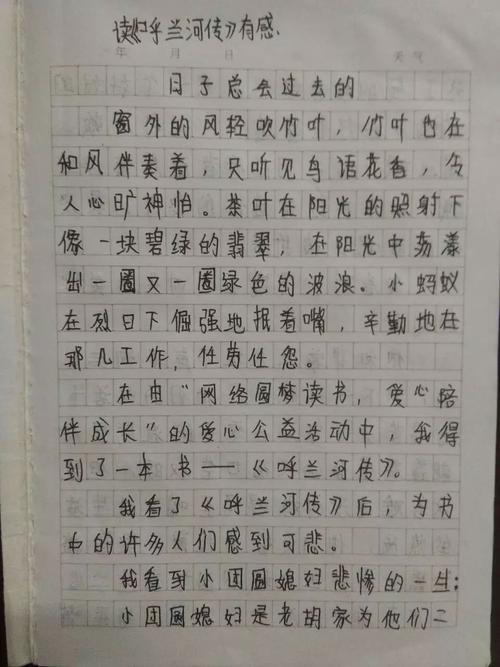 读《呼兰河传》有感.
年 月 日 天气
日子总会过去的
窗外的风轻吹竹叶，竹叶也在
和风伴奏着，只听见鸟语花香，令
人心旷神怡。茶叶在阳光的照射下
像一块碧绿的翡翠，在阳光中荡漾
出一圈又一圈绿色的波浪。小蚂蚁
在烈日下倔强地抿着嘴，辛勤地在
那儿工作，任劳任怨。
在由“网络圆梦读书，爱心陪
伴成长”的爱心公益活动中，我得
到了一本书——《呼兰河传》。
我看了《呼兰河传》后，为书
中的许多人们感到可悲。
我看到小团圆媳妇悲惨的一生；
小团圆媳妇是老胡家为他们二